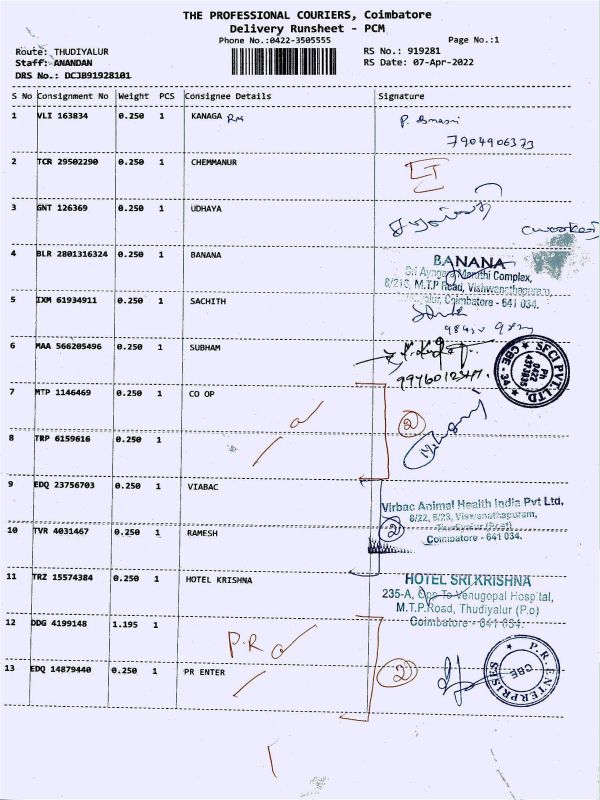 THE PROFESSIONAL COURIERS, Coimbatore
Delivery Runsheet - PCM
Phone No.:0422-3505555
Page No.:1
Route: THUDIYALUR
RS No.: 919281
Staff: ANANDAN
RS Date: 07-Apr-2022
DRS No.: DCJB91928101
S No Consignment No Weight PCS Consignee Details Signature
1 VLI 163834 0.250 1 KANAGA RM
7904906373
2 TCR 29502290 0.250 1 CHEMMANUR
3 GNT 126369 0.250 1 UDHAYA
4 BLR 2801316324 0.250 1 BANANA
BANANA
Complex,
M.T.P Road, Vishwanathapuram,
Coimbatore - 641 034.
5 IXM 61934911 0.250 1 SACHITH
6 MAA 566205496 0.250 1 SUBHAM
SFCI PVT. LTD.
CBE - 34
7 MTP 1146469 0.250 1 CO OP
2
8 TRP 6159616 0.250 1
9 EDQ 23756703 0.250 1 VIABAC
Virbac Animal Health India Pvt Ltd,
6/22, 6/23, Viswanathapuram,
Thudiyalur (Post)
Coimbatore - 641 034.
2
10 TVR 4031467 0.250 1 RAMESH
11 TRZ 15574384 0.250 1 HOTEL KRISHNA
HOTEL SRI KRISHNA
235-A, Opp To Venugopal Hospital,
M.T.P.Road, Thudiyalur (P.o)
Coimbatore - 641 034.
12 DDG 4199148 1.195 1
P.R
2
13 EDQ 14879440 0.250 1 PR ENTER
P.R. ENTERPRISES
CBE